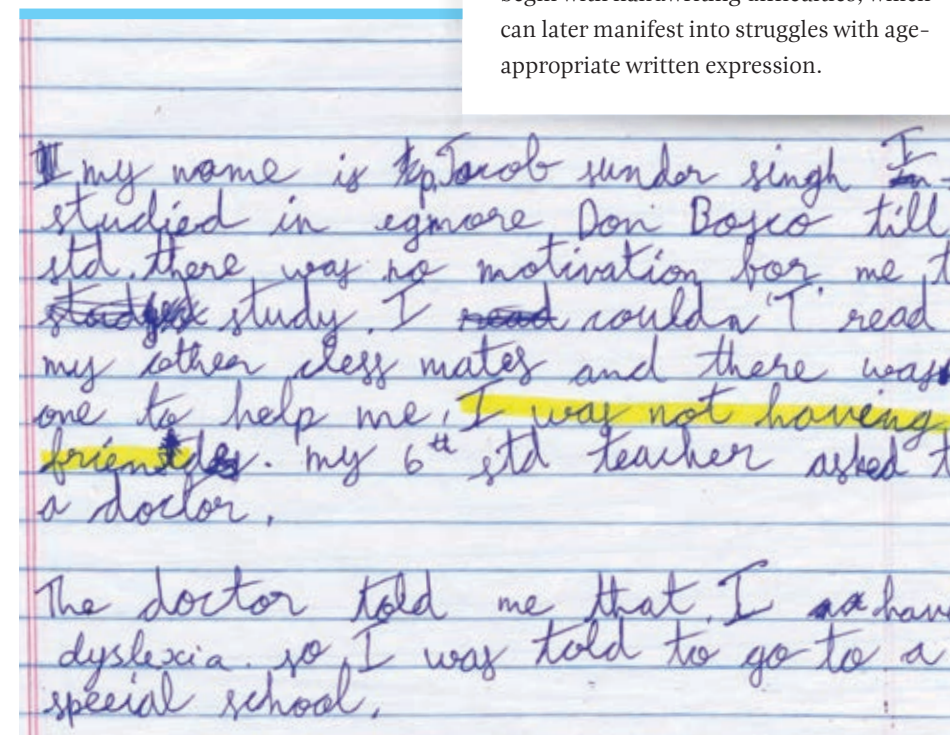 can later manifest into struggles with age-
appropriate written expression.
I my name is Jacob sunder singh I
studied in egmore Don Bosco till
std. there was no motivation bor me t
study. I read couldn'T read
my other cless mates and there was
one to help me. I was not having
friends. my 6th std teacher asked t
a doctor.
The doctor told me that I have
dyslexia. so I was told to go to a
special school.